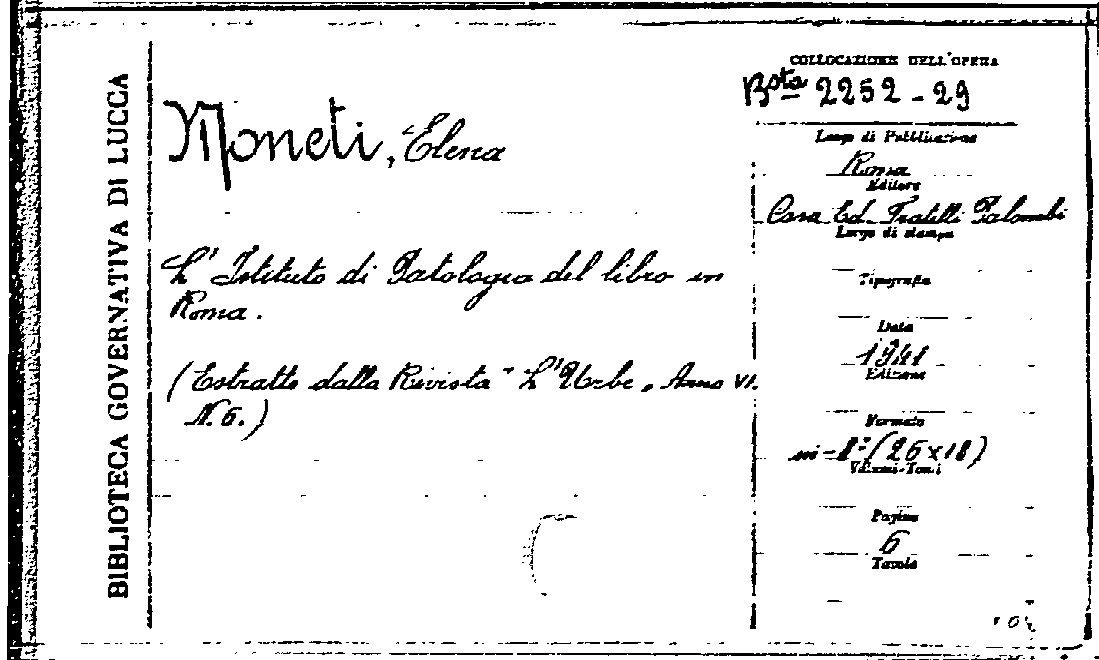 BIBLIOTECA GOVERNATIVA DI LUCCA
Moneti, Elena
L' Istituto di Patologia del libro in
Roma.
(Estratto dalla Rivista "L'Urbe" Anno VI.
N. 6.)
COLLOCAZIONE DELL'OPERA
Bsta 2252 - 29
Luogo di Pubblicazione
Roma
Editore
Casa Ed. Fratelli Palombi
Luogo di stampa
Tipografia
Data
1941
Edizione
Formato
in-8º (26x18)
Volumi-Tomi
Pagine
6
Tavole